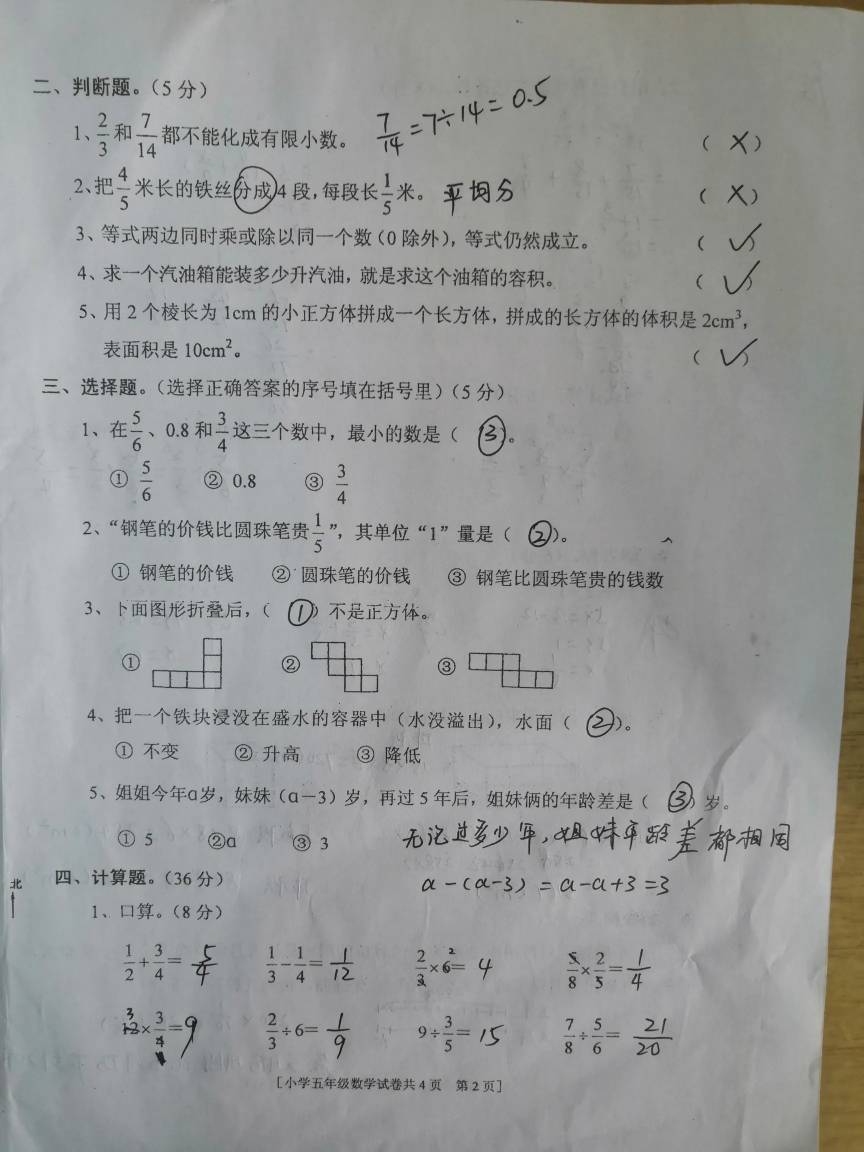 二、判断题。(5分)
1、2/3和7/14都不能化成有限小数。 7/14=7÷14=0.5 (×)
2、把4/5米长的铁丝分成4段,每段长1/5米。 平均分 (×)
3、等式两边同时乘或除以同一个数(0除外),等式仍然成立。 (√)
4、求一个汽油箱能装多少升汽油,就是求这个油箱的容积。 (√)
5、用2个棱长为1cm的小正方体拼成一个长方体,拼成的长方体的体积是2cm³,
表面积是10cm²。 (√)
三、选择题。(选择正确答案的序号填在括号里)(5分)
1、在5/6、0.8和3/4这三个数中,最小的数是(③)。
① 5/6 ② 0.8 ③ 3/4
2、“钢笔的价钱比圆珠笔贵1/5”,其单位“1”量是(②)。
① 钢笔的价钱 ② 圆珠笔的价钱 ③ 钢笔比圆珠笔贵的钱数
3、下面图形折叠后,(①)不是正方体。
① ② ③
4、把一个铁块浸没在盛水的容器中(水没溢出),水面(②)。
① 不变 ② 升高 ③ 降低
5、姐姐今年a岁,妹妹(a-3)岁,再过5年后,姐妹俩的年龄差是(③)岁。
① 5 ②a ③ 3 无论过多少年,姐妹年龄差都相同
a-(a-3)=a-a+3=3
北
四、计算题。(36分)
1、口算。(8分)
1/2+3/4=5/4 1/3-1/4=1/12 2/3×6=4 5/8×2/5=1/4
12×3/4=9 2/3÷6=1/9 9÷3/5=15 7/8÷5/6=21/20
[小学五年级数学试卷共4页 第2页]